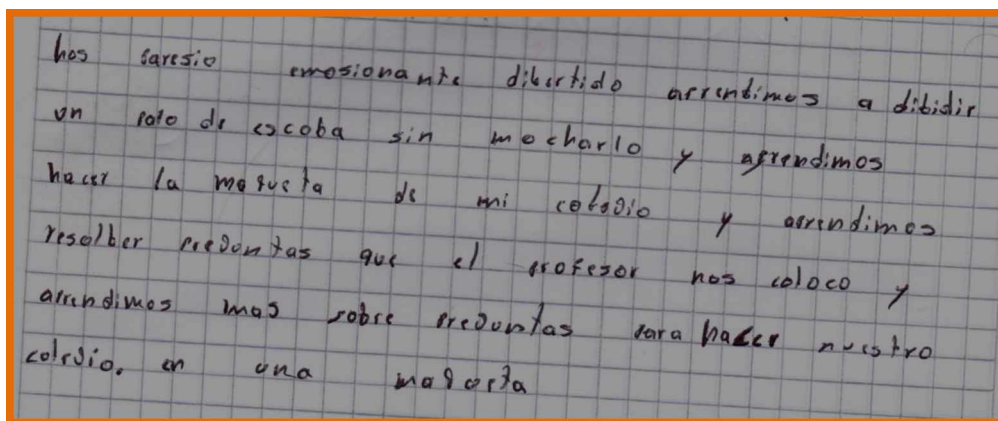 hos paresio emosionante dibertido aprendimos a dibidir
un palo de escoba sin mocharlo y aprendimos
hacer la maqueta de mi colegio y aprendimos
resolber preguntas que el profesor nos coloco y
aprendimos mas sobre preguntas para hacer nuestro
colegio. en una maqueta